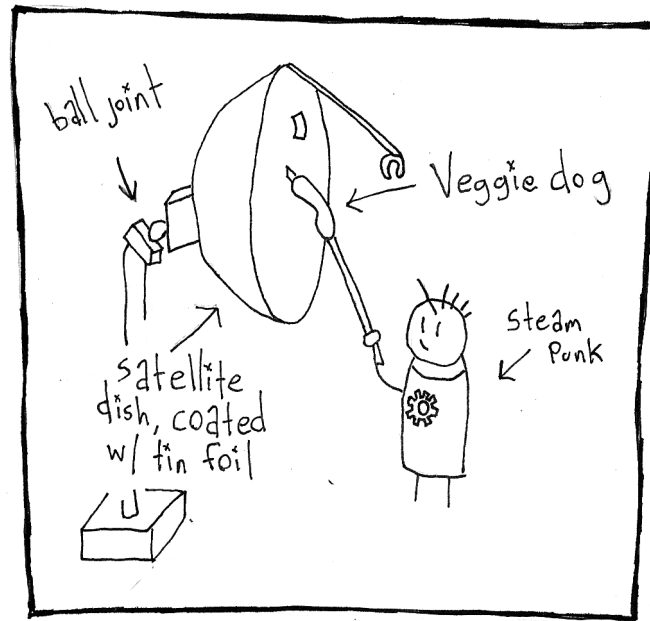 ball joint
Veggie dog
steam
punk
satellite
dish, coated
w/ tin foil